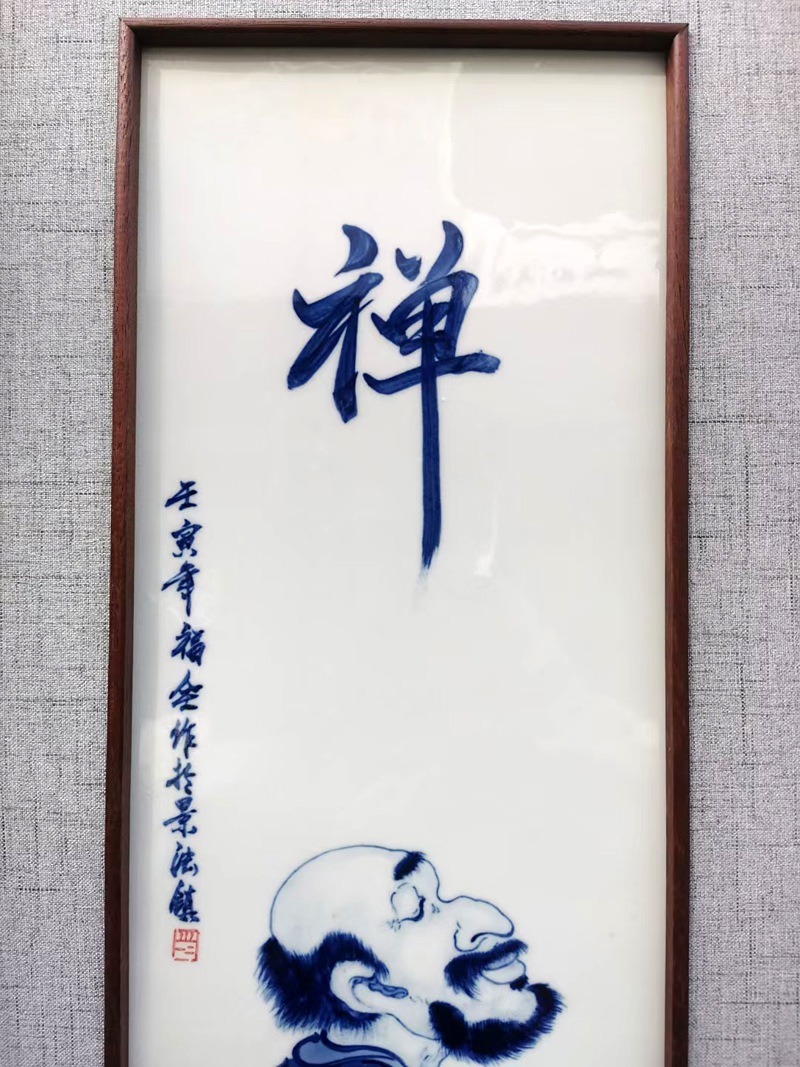 禅
壬寅年福全作於景德鎮